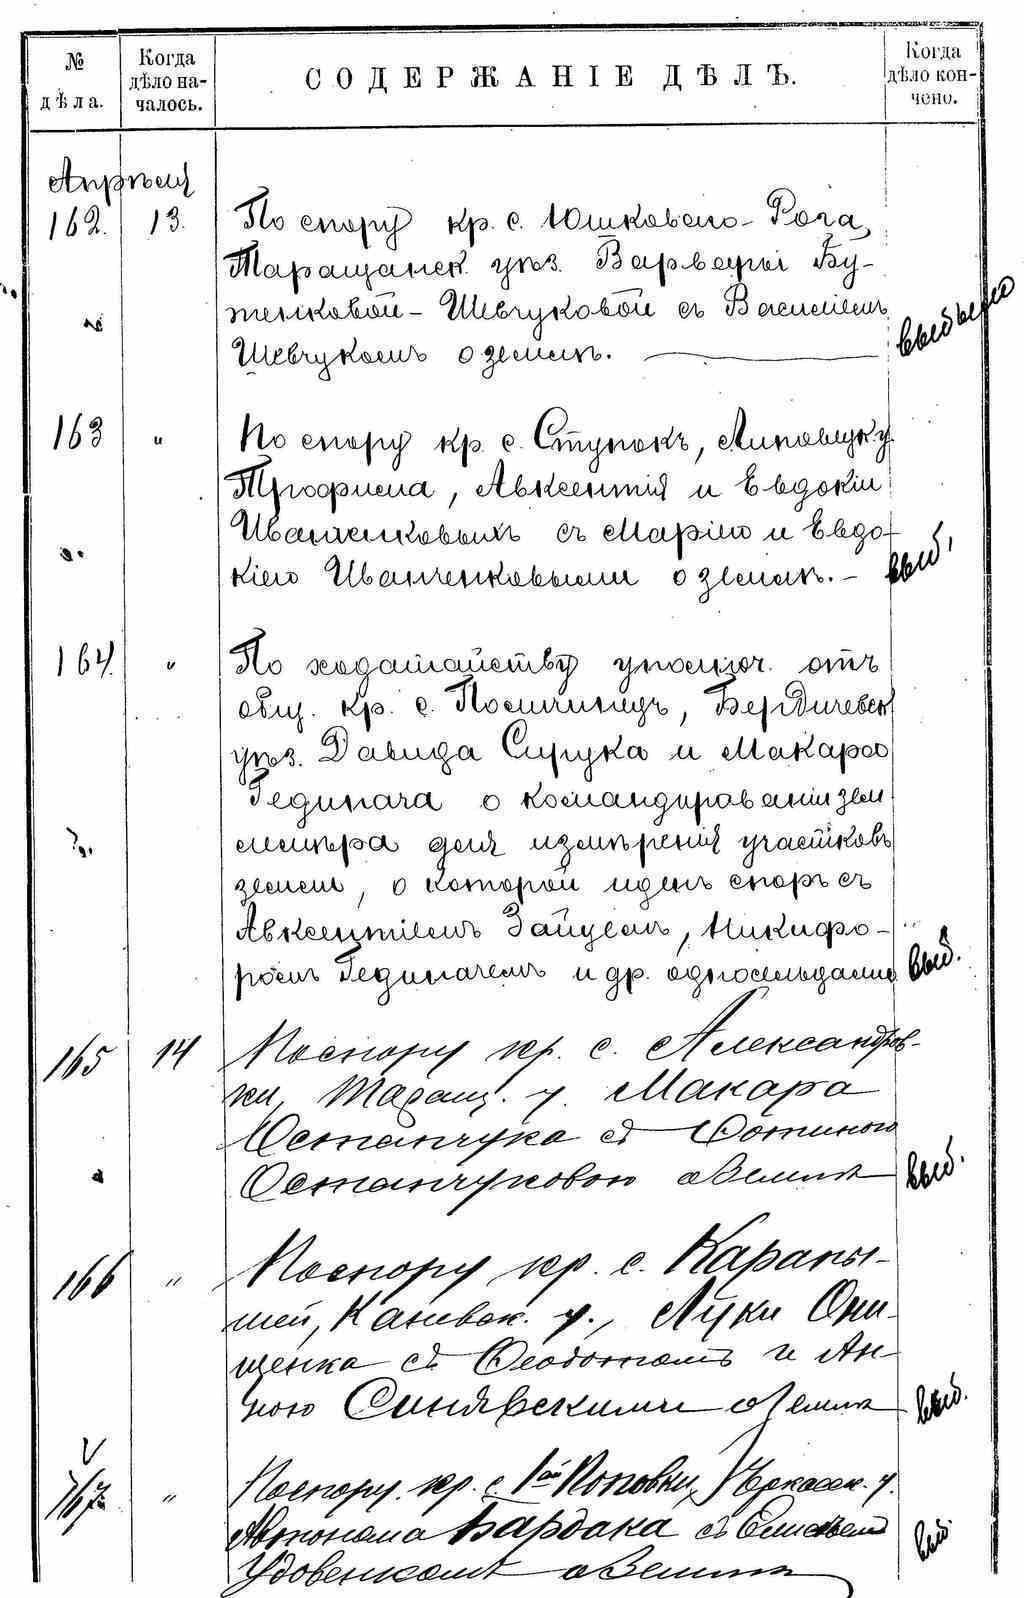 № дѣла.
Когда дѣло началось.
СОДЕРЖАНІЕ ДѢЛЪ.
Когда дѣло кончено.
Апрѣля
162. 13. По спору кр. с. Юшковаго-Рога,
Таращанск. уѣз. Варвары Бу-
тенковой-Шевчуковой съ Василіемъ
Шевчукомъ о землѣ. выбыло
163 " По спору кр. с. Ступокъ, Липовец. у.
Трофима, Авксентія и Евдокіи
Иванченковыхъ съ Маріею и Евдо-
кіею Иванченковыми о землѣ. - выб.
164. " По ходатайству уполноч. отъ
общ. кр. с. Пиличинецъ, Бердичевск
уѣз. Давида Сирука и Макара
Гединача о командированіи зем
лемѣра для измѣренія участковъ
земли, о которой идетъ споръ съ
Авксентіемъ Зайцемъ, Никифо-
ромъ Гединачемъ и др. односельцами выб.
165 14 По спору кр. с. Александров-
ки, Таращ. у. Макара
Остапчука съ Фотиною
Остапчуковою о землѣ выб.
166 " По спору кр. с. Карапы-
шей, Каневск. у., Луки Они-
щенка съ Феодотомъ и Ан-
ною Синявскими о землѣ выб.
167 " По спору кр. с. 1ой Поповки, Черкасск. у.
Автонома Бардака съ
Удовенкомъ о землѣ выб.